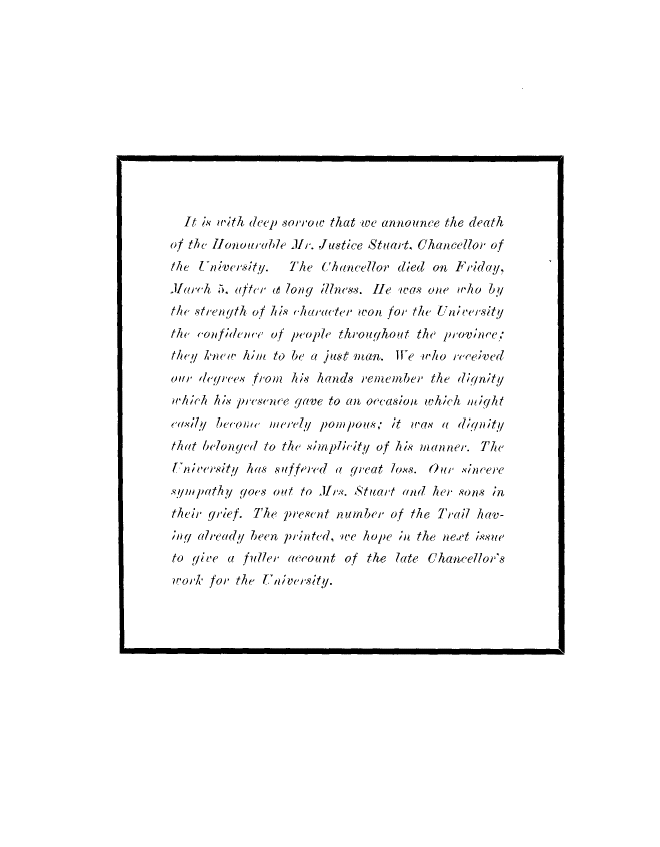 It is with deep sorrow that we announce the death
of the Honourable Mr. Justice Stuart, Chancellor of
the University. The Chancellor died on Friday,
March 5, after a long illness. He was one who by
the strength of his character won for the University
the confidence of people throughout the province;
they knew him to be a just man. We who received
our degrees from his hands remember the dignity
which his presence gave to an occasion which might
easily become merely pompous; it was a dignity
that belonged to the simplicity of his manner. The
University has suffered a great loss. Our sincere
sympathy goes out to Mrs. Stuart and her sons in
their grief. The present number of the Trail hav-
ing already been printed, we hope in the next issue
to give a fuller account of the late Chancellor's
work for the University.